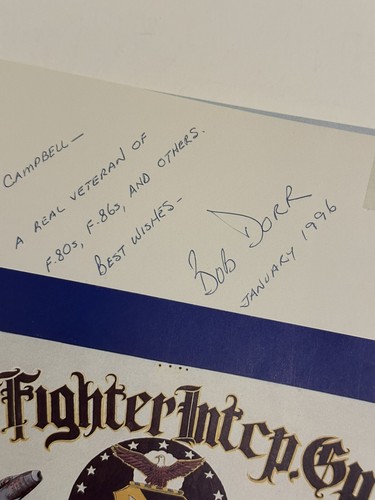 CAMPBELL—
A REAL VETERAN OF
F.80s, F.86s, AND OTHERS.
BEST WISHES—
Bob Dorr
JANUARY 1996
Fighter Intcp. Gp